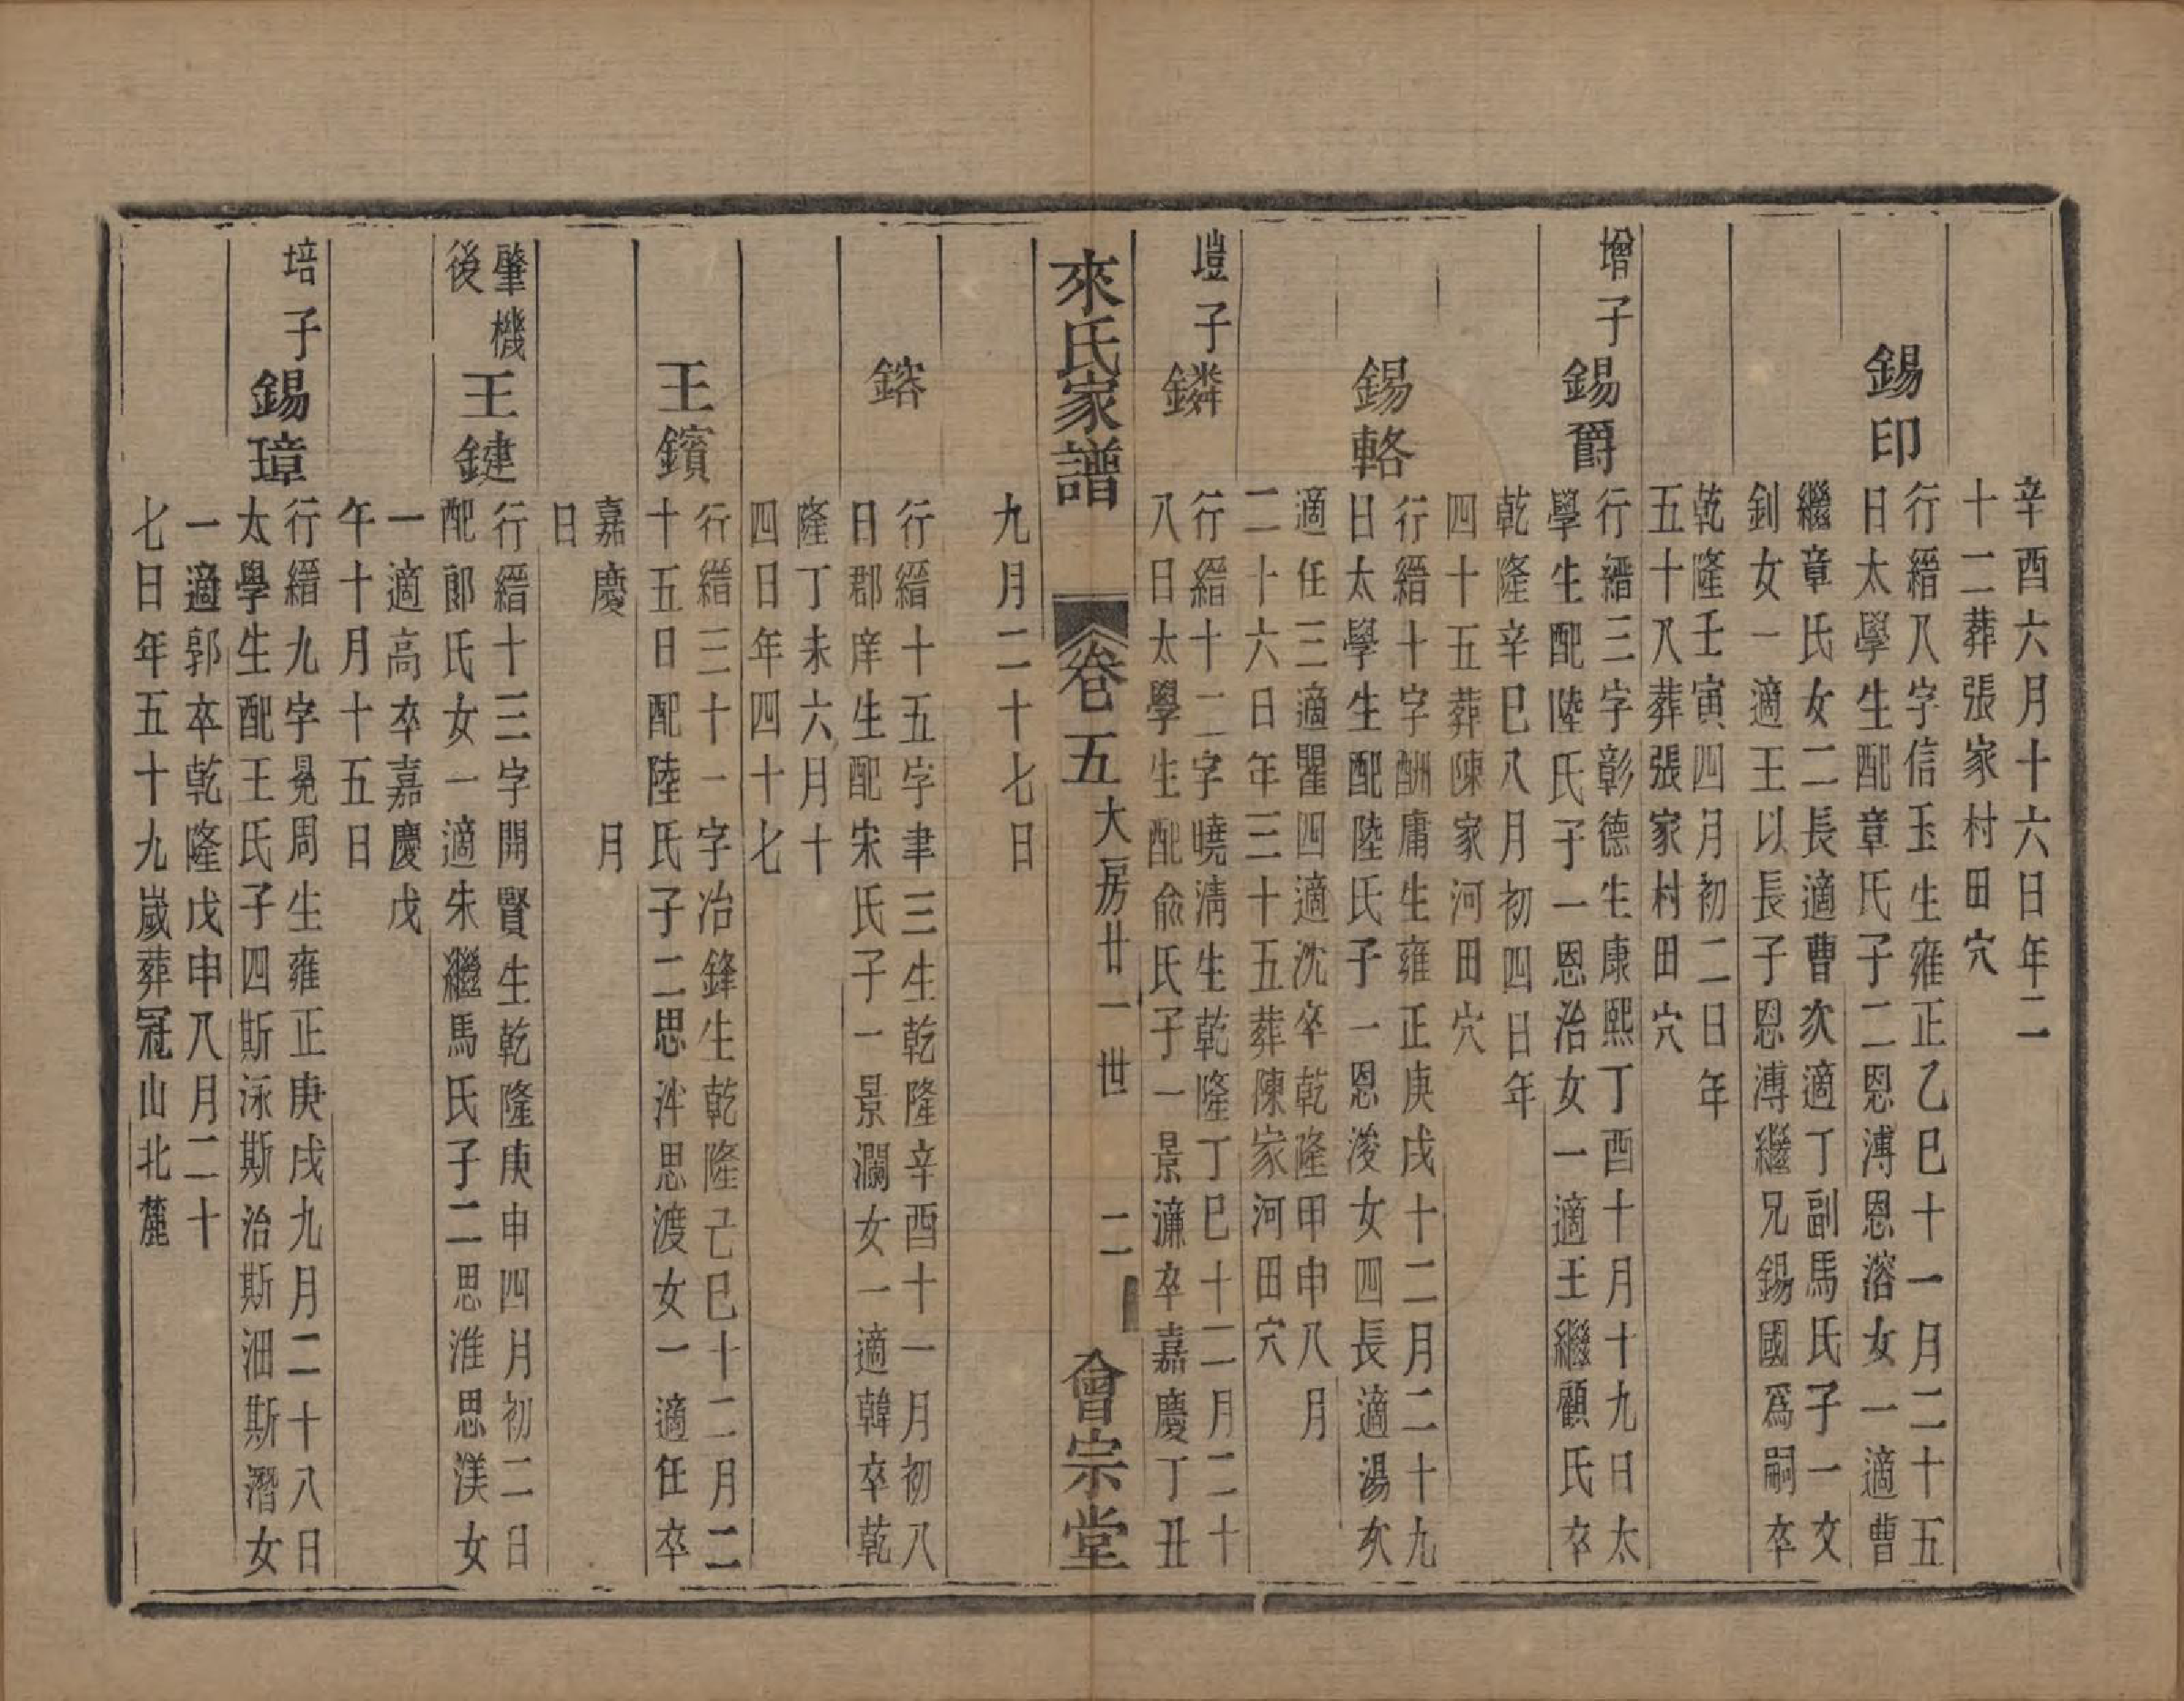 辛酉六月十六日年二
十二葬張家村田穴
錫印
行縉八字信玉生雍正乙巳十一月二十五
日太學生配章氏子二恩溥恩溶女一適曹
繼章氏女二長適曹次適丁副馬氏子一文
釗女一適王以長子恩溥繼兄錫國爲嗣卒
乾隆壬寅四月初二日年
五十八葬張家村田穴
增子
錫爵
行縉三字彰德生康熙丁酉十月十九日太
學生配陸氏子一恩治女一適王繼顧氏卒
乾隆辛巳八月初四日年
四十五葬陳家河田穴
錫輅
行縉十字酬庸生雍正庚戌十二月二十九
日太學生配陸氏子一恩浚女四長適湯次
適任三適瞿四適沈卒乾隆甲申八月
二十六日年三十五葬陳家河田穴
塏子
鏻
行縉十二字曉淸生乾隆丁巳十二月二十
八日太學生配俞氏子一景濂卒嘉慶丁丑
來氏家譜
卷五
大房廿一世
二
會宗堂
九月二十七日
鎔
行縉十五字聿三生乾隆辛酉十一月初八
日郡庠生配宋氏子一景瀾女一適韓卒乾
隆丁未六月十
四日年四十七
王鑌
行縉三十一字冶鋒生乾隆己巳十二月二
十五日配陸氏子二思泮思渡女一適任卒
嘉慶 月
日
肇機
後
王鍵
行縉十三字開賢生乾隆庚申四月初二日
配郞氏女一適朱繼馬氏子二思淮思渼女
一適高卒嘉慶戊
午十月十五日
培子
錫璋
行縉九字晃周生雍正庚戌九月二十八日
太學生配王氏子四斯泳斯治斯沺斯潛女
一適郭卒乾隆戊申八月二十
七日年五十九歲葬冠山北麓